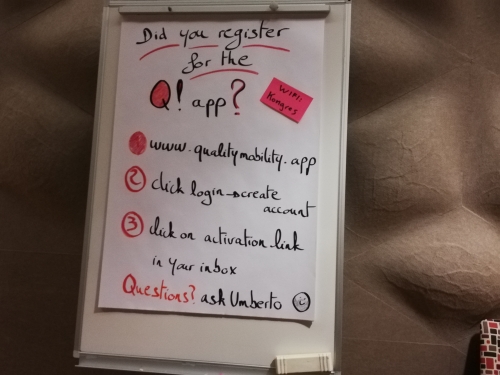 Did you register
for the
Q! app?
WIFI:
Kongres
1 www.qualitymobility.app
2 click login → create
account
3 click on activation link
in your inbox
Questions? ask Umberto ☺